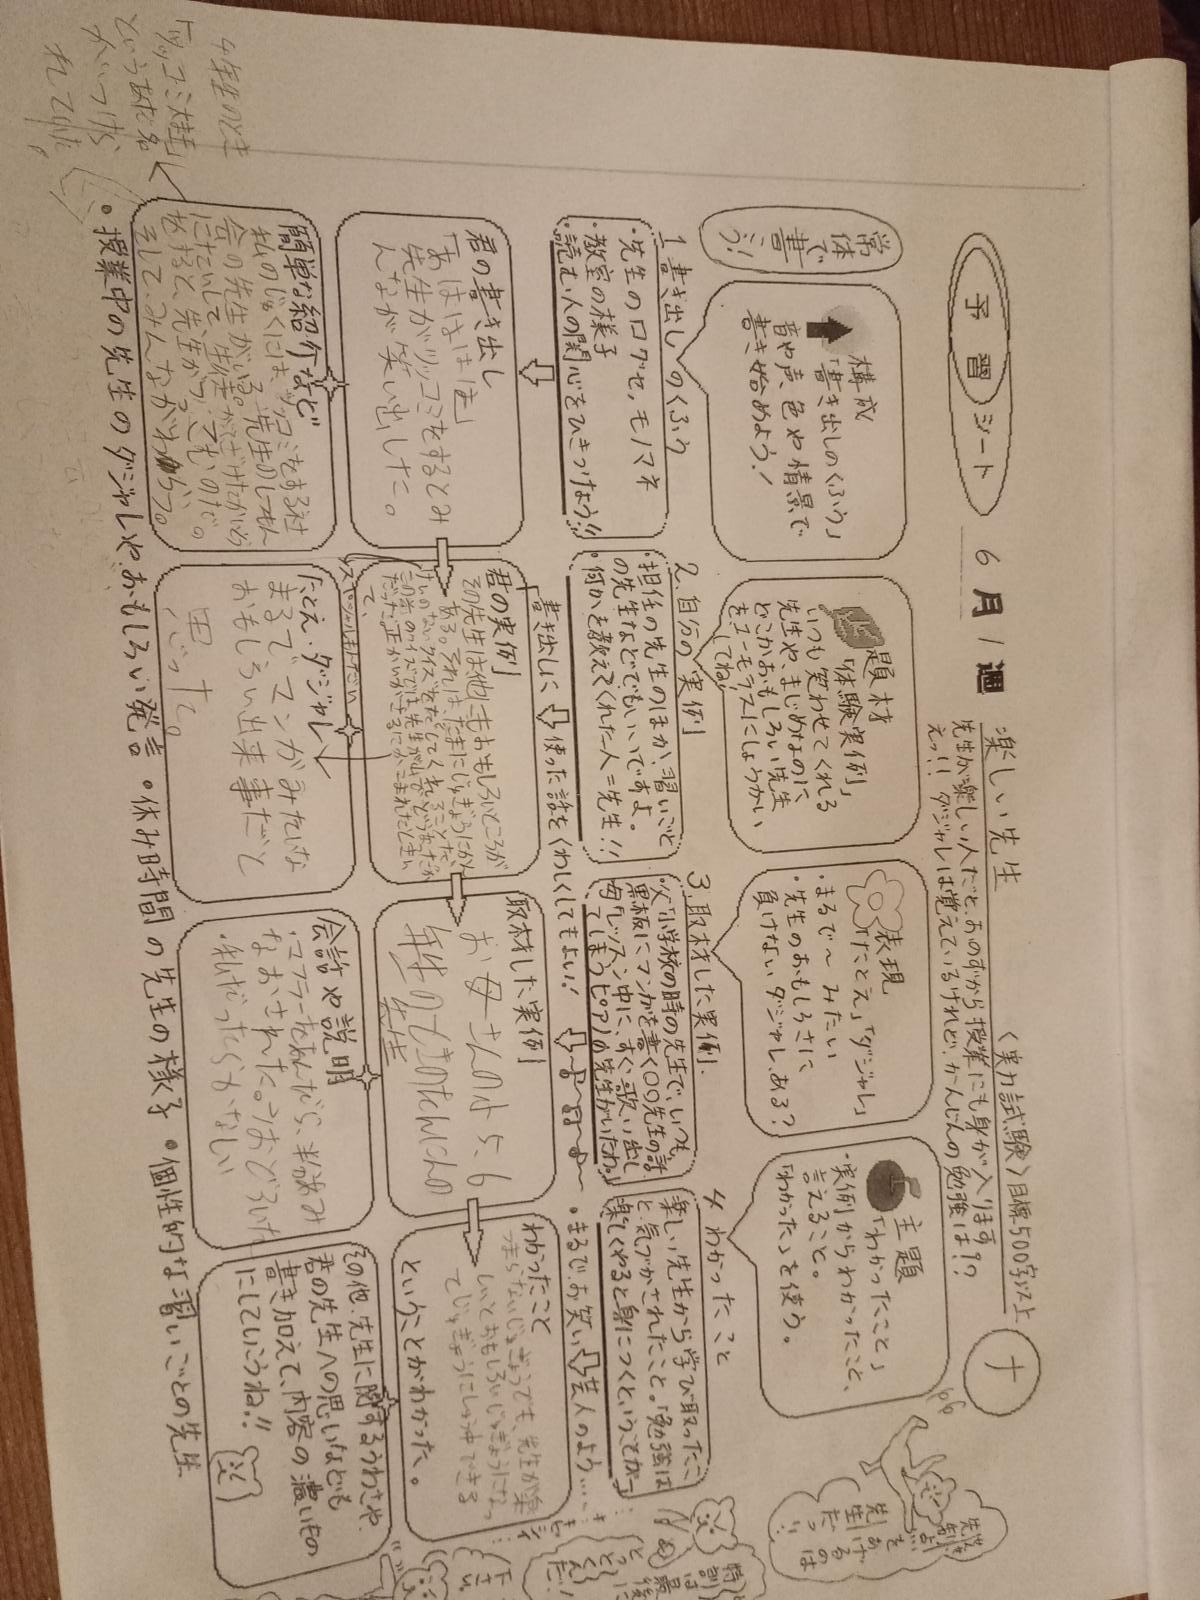 予習シート
6月1週
楽しい先生
〈実力試験〉目標500字以上
ナ
先生が楽しい人だと、おのずから授業にも身が入ります
えっ!! ダジャレは覚えているけれど、かんじんの勉強は!?
常体で書こう!
構成
「書き出しのくふう」
音や声、色や情景で
書き始めよう!
題材
「体験実例」
いつも笑わせてくれる
先生や、まじめなのに、
どこかおもしろい先生
をユーモラスにしょうかい
してね!
表現
「たとえ」「ダジャレ」
・まるで〜みたい
・先生のおもしろさに
負けないダジャレ、ある?
主題
「わかったこと」
・実例からわかったこと、
言えること。
「わかった」を使う。
1 書き出しのくふう
・先生の口グセ、モノマネ
・教室の様子
・読む人の関心をひきつけよう!!
2. 自分の実例
・担任の先生のほか、習いごと
の先生などでもいいですよ。
・何かを教えてくれた人=先生!!
3. 取材した実例
・父「小学校の時の先生で、いつも
黒板にマンガを書く〇〇先生の話
・母「レッスン中に、すぐ歌い出し
てしまうピアノの先生がいたわ」
4 わかったこと
楽しい先生から学び取ったこ
と、気づかされたこと。「勉強は
楽しくやると身につくということが〜
書き出しに使った話をくわしくしてもよい!
・まるで、お笑い芸人のよう…
君の書き出し
「あははは」
先生がツッコミをするとみ
んなが笑い出した。
君の実例
その先生は他にもおもしろいところが
ある。それは、たまにじゅぎょうにかん
けいのないクイズをだしてくれることだ。
取材した実例
お母さんの小5、6
年生のときのたんにんの
先生
わかったこと
つまらないじゅぎょうでも、先生が楽
しいとおもしろいじゅぎょうになっ
てじゅぎょうにしゅう中できる
ということがわかった。
簡単な紹介など
私のじゅくには、ツッコミをする社
会の先生がいる。その先生のじゅぎょう
そして、みんながわらう。
たとえ・ダジャレ
まるでマンガみたいな
おもしろい出来事だと
思った。
会話や説明
・マフラーをあんだら、半分あみ
なおされた。
・私だったら
その他、先生に関するうわさや、
君の先生への思いなども
書き加えて、内容の濃いもの
にしていこうね!!
・授業中の先生のダジャレや、おもしろい発言 ・休み時間の先生の様子 ・個性的な習いごとの先生
4年生のとき
「ツッコミ大王」
というあだ名
がつけら
れていた。